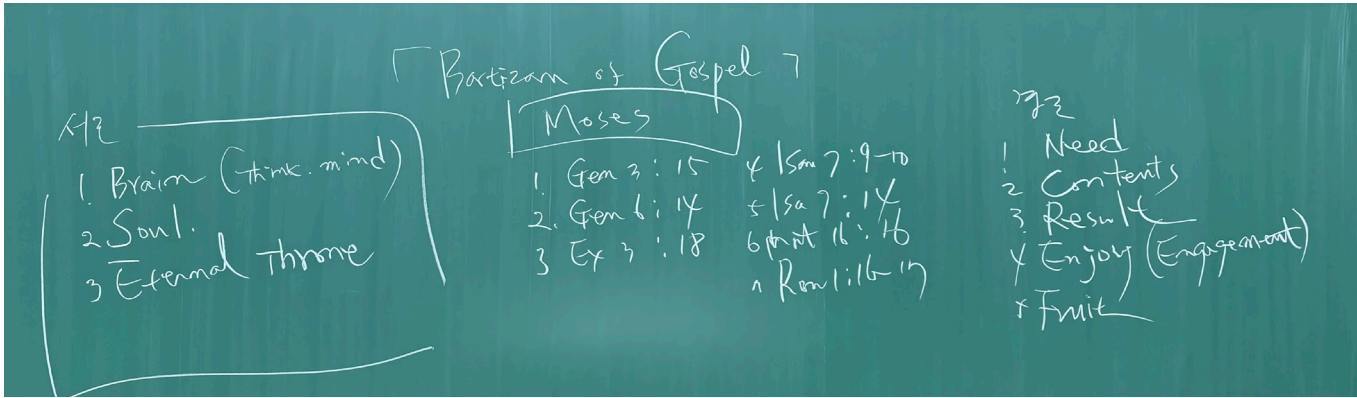 「Bartizan of Gospel」
서론
1. Brain (think. mind)
2 Soul.
3 Eternal Throne
Moses
1. Gen 3:15
2. Gen 6:14
3 Ex 3:18
4 1Sam 7:9-10
5 Isa 7:14
6 Matt 16:16
7 Rom 1:16-17
결론
1 Need
2 Contents
3 Result
4 Enjoy (Engagement)
5 Fruit